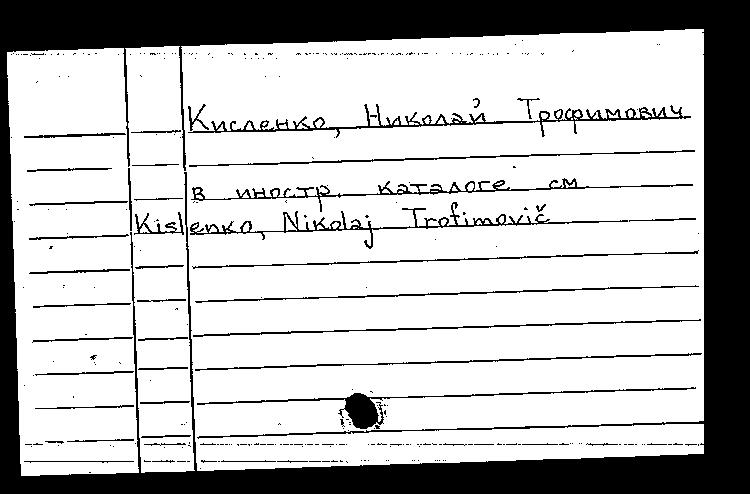 Кисленко, Николай Трофимович
в иностр. каталоге см
Kislenko, Nikolaj Trofimovič